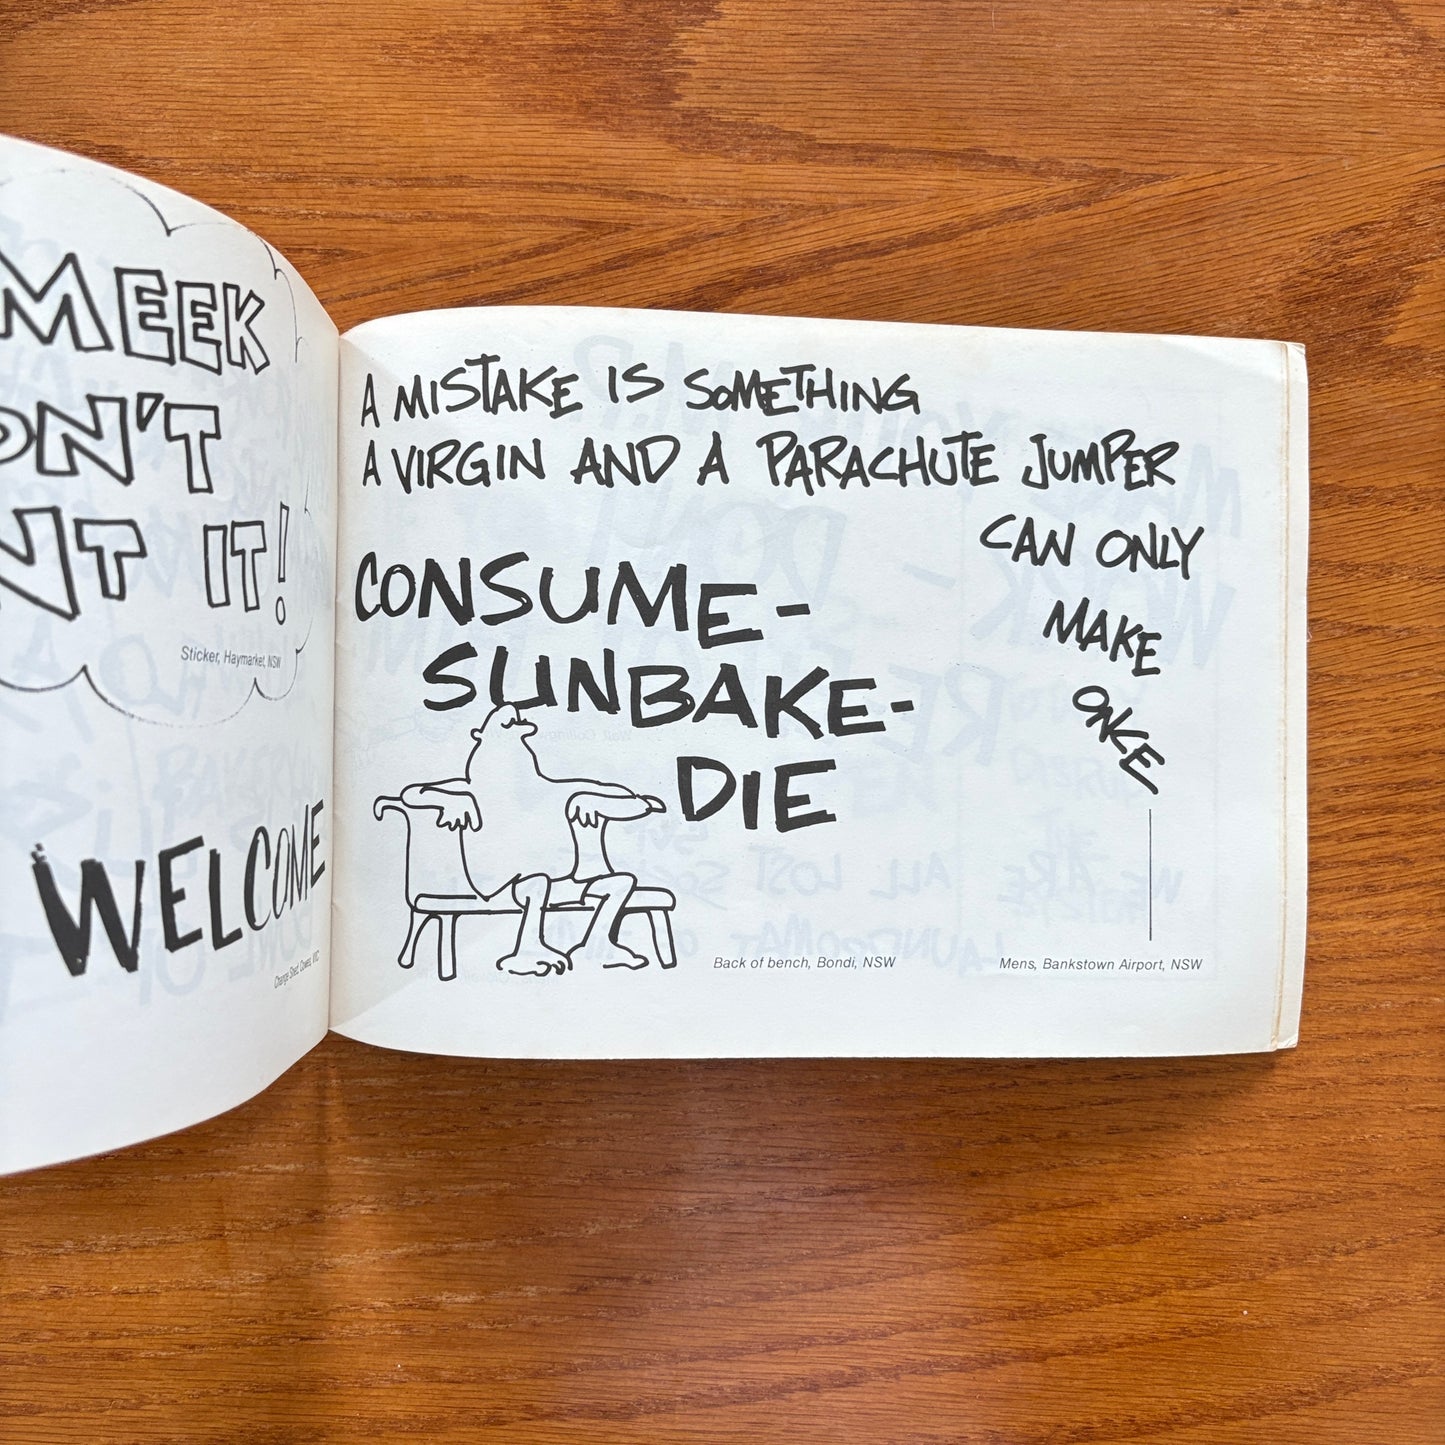 MEEK
ON'T
NT IT!
Sticker, Haymarket, NSW
WELCOME
Change Shed, Cowes, VIC
A MISTAKE IS SOMETHING
A VIRGIN AND A PARACHUTE JUMPER
CAN ONLY
MAKE
ONCE
Mens, Bankstown Airport, NSW
CONSUME-
SUNBAKE-
DIE
Back of bench, Bondi, NSW